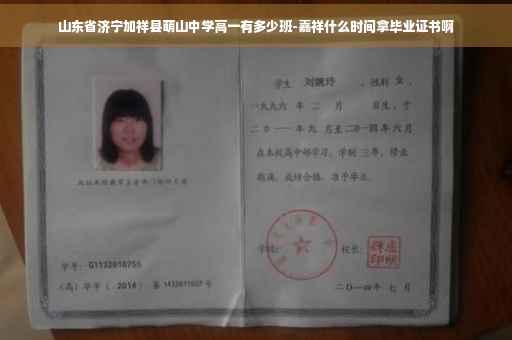 山东省济宁加祥县萌山中学高一有多少班-嘉祥什么时间拿毕业证书啊
学生 刘婉玲 ,性别 女 ,
一九九六 年 二 月 日生,于
二〇一一年九 月至二〇一四年六月
在本校高中部学习,学制 三年,修业
期满,成绩合格,准予毕业。
学号: G1132010755
学校: 校长:
(高)毕字( 2014 )第 1432011027 号
二〇一四年 七 月